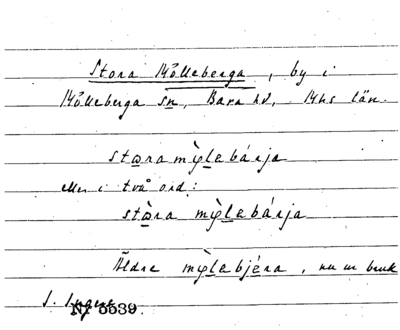 Stora Mölleberga, by i
Mölleberga sn, Bara hd, Mhs län.
stωra mỳlebárja
Eller i två ord:
stὼra mỳlebárja
Äldre mỳlebjéra, nu ur bruk
Nr 5539.